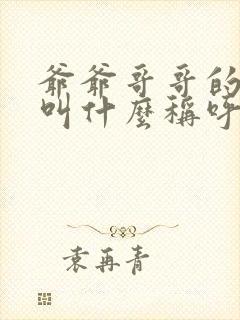 爺爺哥哥的
叫什麼稱呼
袁再青